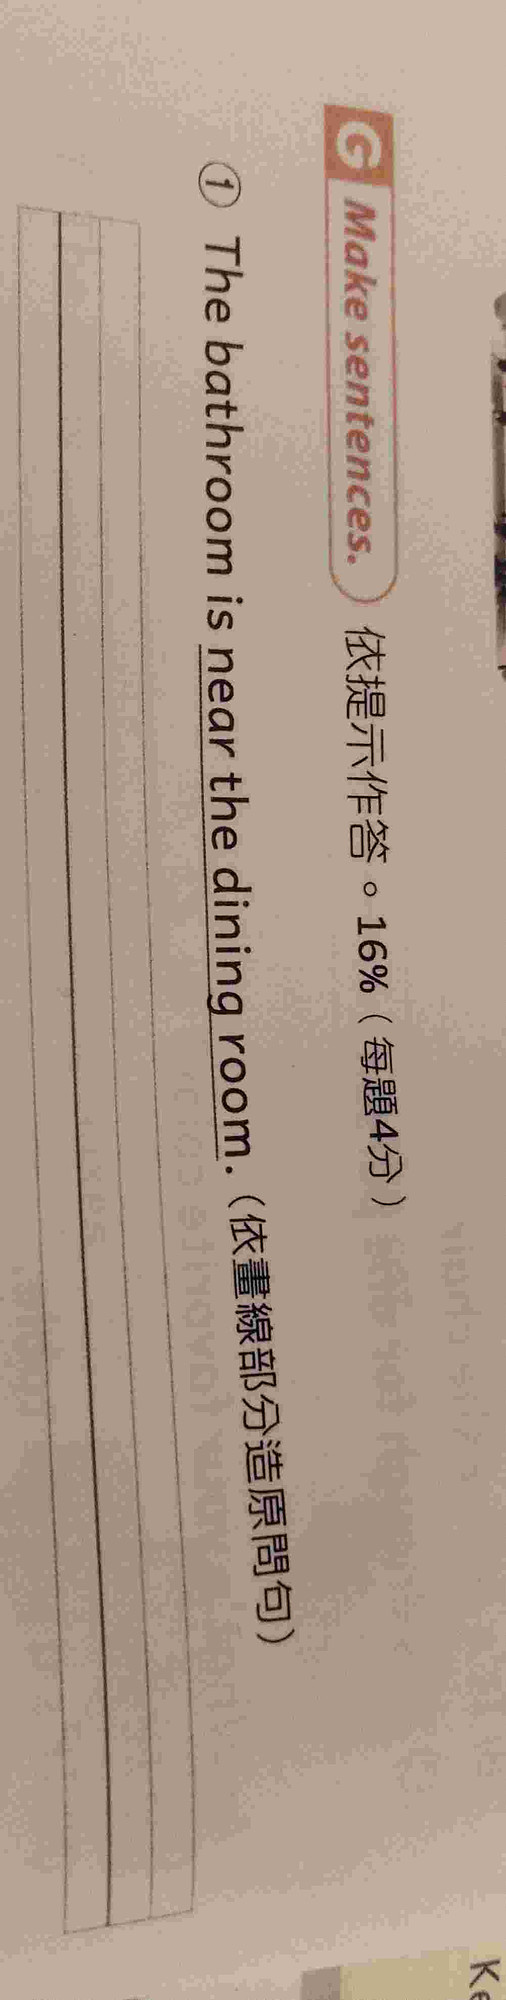 G Make sentences. 依提示作答。16%（每題4分）
① The bathroom is near the dining room.（依畫線部分造原問句）